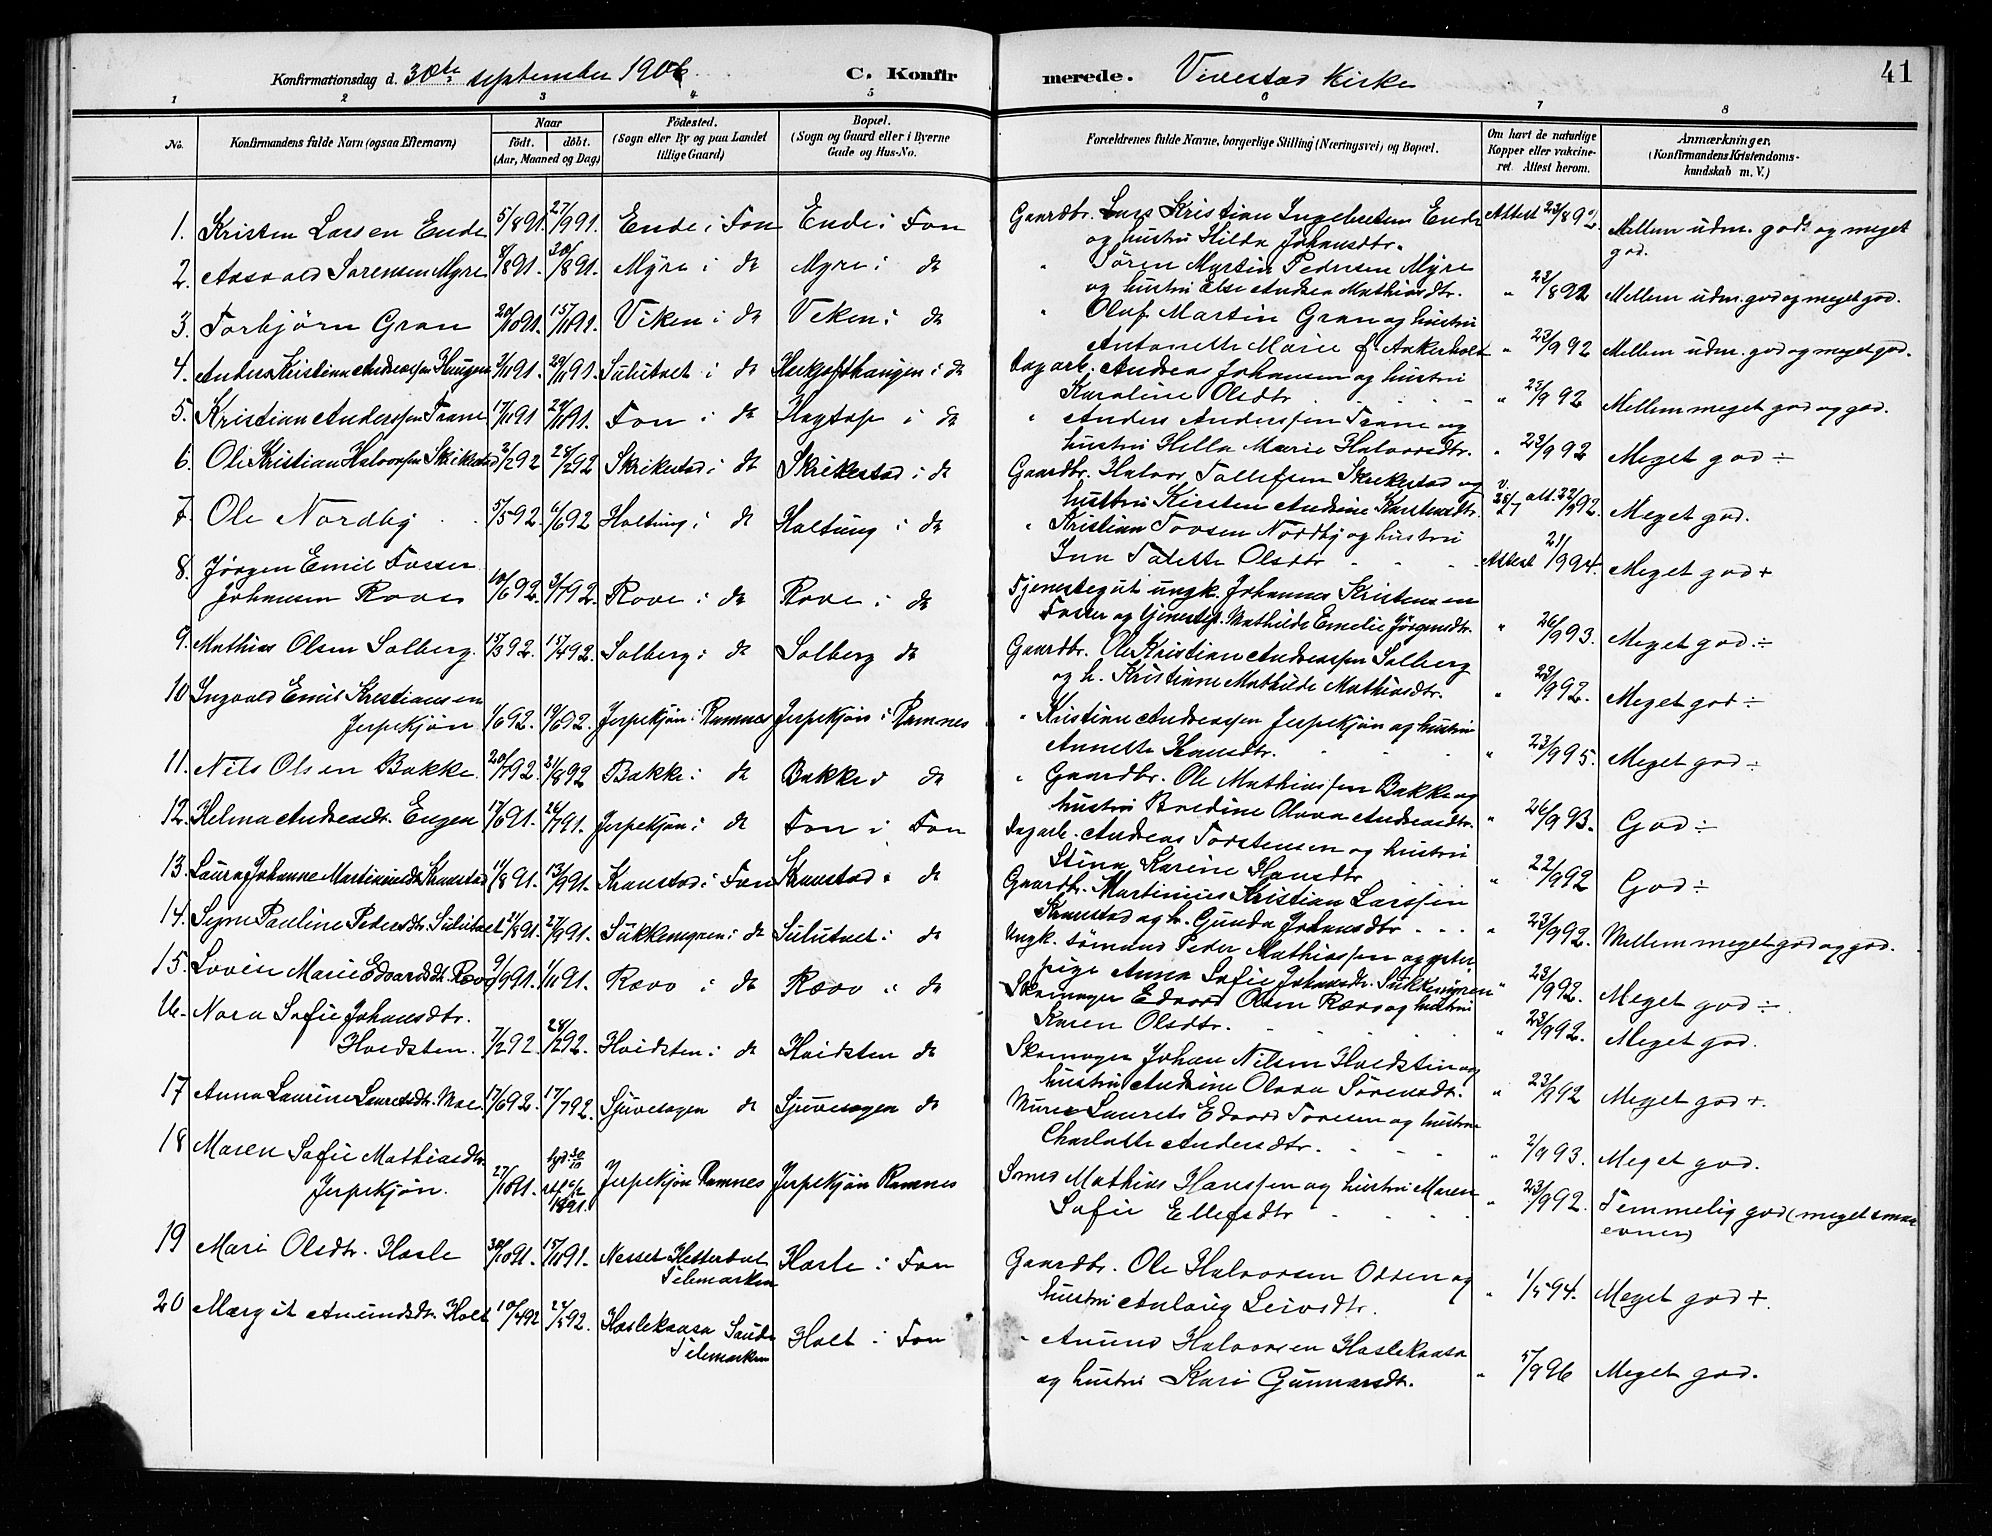 Konfirmationsdag d. 30te september 1906. C. Konfir
merede. Vivestad Kirke 41
1 2 3 4 5 6 7 8
No.
Konfirmandens fulde Navn (ogsaa Efternavn)
Naar
født. døbt.
(Aar, Maaned og Dag)
Fødested.
(Sogn eller By og paa Landet
tillige Gaard)
Bopæl.
(Sogn og Gaard eller i Byerne
Gade og Hus-No.
Forældrenes fulde Navne, borgerlige Stilling (Næringsvei) og Bopæl.
Om havt de naturlige
Kopper eller vakcine-
ret. Attest herom.
Anmærkninger.
(Konfirmandens Kristendoms-
kundskab m. V.)
1. Kristen Larsen Ende 5/8 91. 27/9 91. Ende i Fon Ende i Fon Gaardbr. Lars Kristian Ingebretsen Ende Attest 23/8 92. Mellem udm. god og meget
og hustru Hilda Johansdtr. god.
2. Aasvald Sørensen Myre 8/8 91. 30/8 91. Myre i do Myre i do " Søren Martin Pedersen Myre
og hustru Else Andrea Mathiasdtr. " 23/8 92 Mellem udm. god og meget god.
3. Torbjørn Gran 20/10 91. 15/11 91. Viken i do Viken i do " Olaf Martin Gran og hustru
Antonette Marie f. Aakerholt " 23/9 92 Mellem udm. god og meget god.
4. Anders Kristian Andreassen Haugen 2/11 91. 29/11 91. Sulutvet i do Herkgofthaugen i do Dagarb. Andreas Johansen og hustru
Karoline Olsdtr " 23/9 92 Mellem meget god og god.
5. Kristian Anderssen Trane 17/11 91 29/11 91. Fon i do Hagtop i do " Anders Anderssen Trane og
hustru Hella Marie Halvorsdtr. " 23/9 92 Meget god ÷
6. Ole Kristian Halvorsen Skrikestad 3/2 92 28/2 92 Skrikestad i do Skrikestad i do Gaardbr. Halvor Tollefsen Skrikestad og
hustru Kirsten Andrine Karstensdtr. v. 25/7 att. 22/9 92. Meget god.
7. Ole Nordby 5/5 92. 6/6 92 Holtung i do Holtung i do " Kristian Torsen Nordby og hustru
Inn Talette Olsdtr Attest 21/9 94. Meget god +
8. Jørgen Emil Fosser
Johansen Rove 10/6 92. 3/7 92. Rove i do Rove i do Tjenestegut ungk. Johannes Kristensen
Fosser og tjenestep. Mathilde Emelie Jørgensdtr. " 26/9 93. Meget god ÷
9. Mathias Olsen Solberg. 15/3 92. 15/4 92. Solberg i do Solberg do Gaardbr. Ole Kristian Andreassen Solberg
og h. Kristiane Mathilde Mathiasdtr. " 23/9 92. Meget god ÷
10 Ingvald Emil Kristiansen
Jerpekjøn 1/6 92. 19/6 92. Jerpekjøn i Ramnes Jerpekjøn i Ramnes " Kristian Andreassen Jerpekjøn og hustru
Annette Hansdtr. " 23/9 95. Meget god ÷
11. Nils Olsen Bakke. 20/7 92. 21/8 92 Bakke i do Bakke i do " Gaardbr. Ole Mathiassen Bakke og
hustru Bredine Olava Andreasdtr. " 26/9 93. God ÷
12. Helma Andreasdtr. Engen 17/6 91. 26/7 91. Jerpekjøn i do Fon i Fon Dagarb. Andreas Torstensen og hustru
Stina Karine Hansdtr " 22/9 92 God ÷
13. Laura Johanne Martiniusdtr Kraustad 11/8 91. 13/9 91. Kraustad i Fon Kraustad i do Gaardbr. Martinius Kristian Larssen
Kraustad og h. Gunda Johansdtr " 23/9 92. Mellem meget god og god.
14. Signe Pauline Pedersdtr. Sulutvet 21/8 91. 27/9 91. Sukkemyren i do Sulutvet i do Ungk. sømand Peder Mathiassen og
pige Anna Sofie Johansdtr. Sukkemyren " 23/9 92. Meget god ÷
15. Lovise Marie Edvardsdtr. Rævo 9/9 91. 1/11 91. Rævo i do Rævo i do Skomager Edvard Olsen Rævo og hustru
Karen Olsdtr. " 23/9 92. Meget god.
16. Nora Sofie Johansdtr.
Hvidsten. 7/2 92. 28/2 92. Hvidsten i do Hvidsten do Skomager Johan Nilsen Hvidsten og
hustru Andrine Olava Sørensdtr. " 23/9 92 Meget god +.
17 Anna Laurine Lauretsdtr. Moe. 17/6 92. 17/7 92. Sjuvesagen do Sjuvesagen do Murer Laurets Edvard Toresen og hustru
Charlotte Andersdtr. " 2/9 93. Meget god.
18 Maren Sofie Mathiasdtr.
Jerpekjøn. 27/10 91. hjd. 30/10 stf. 6/12 1891. Jerpekjøn Ramnes Jerpekjøn Ramnes Smed Mathias Hanssen og hustru Maren
Sofie Ellefsdtr " 23/9 92. Temmelig god (meget smaa
evner)
19 Mari Olsdtr. Hasle 30/10 91. 15/11 91. Nesset Hetterdal
Telemarken Hasle i Fon Gaardbr. Ole Halvorsen Odden og
hustru Anlaug Leivsdtr. " 1/5 94. Meget god +.
20 Margit Anundsdtr. Holt 10/4 92 24/4 92. Haslekaasa Saude
Telemarken Holt i Fon " Anund Halvorsen Haslekaasa
og hustru Kari Gunnarsdtr. " 5/9 96 Meget god.